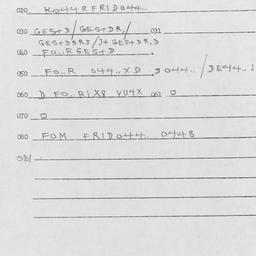 020 K044RFRID044..
030 GES+D/GES+DR,/ 031
GES+D3RS/J+GES+DR,D
040 FO..RGES+D .
050 FO..R 044..XD .DO44../BE44..
060 D FO..RIX8 VU4X 061 O
070 O
080 FOM FRID044.. 044B
081